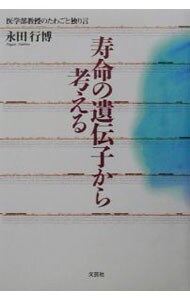 医学部教授のたわごと独り言
永田行博
寿命の遺伝子から
考える
文芸社